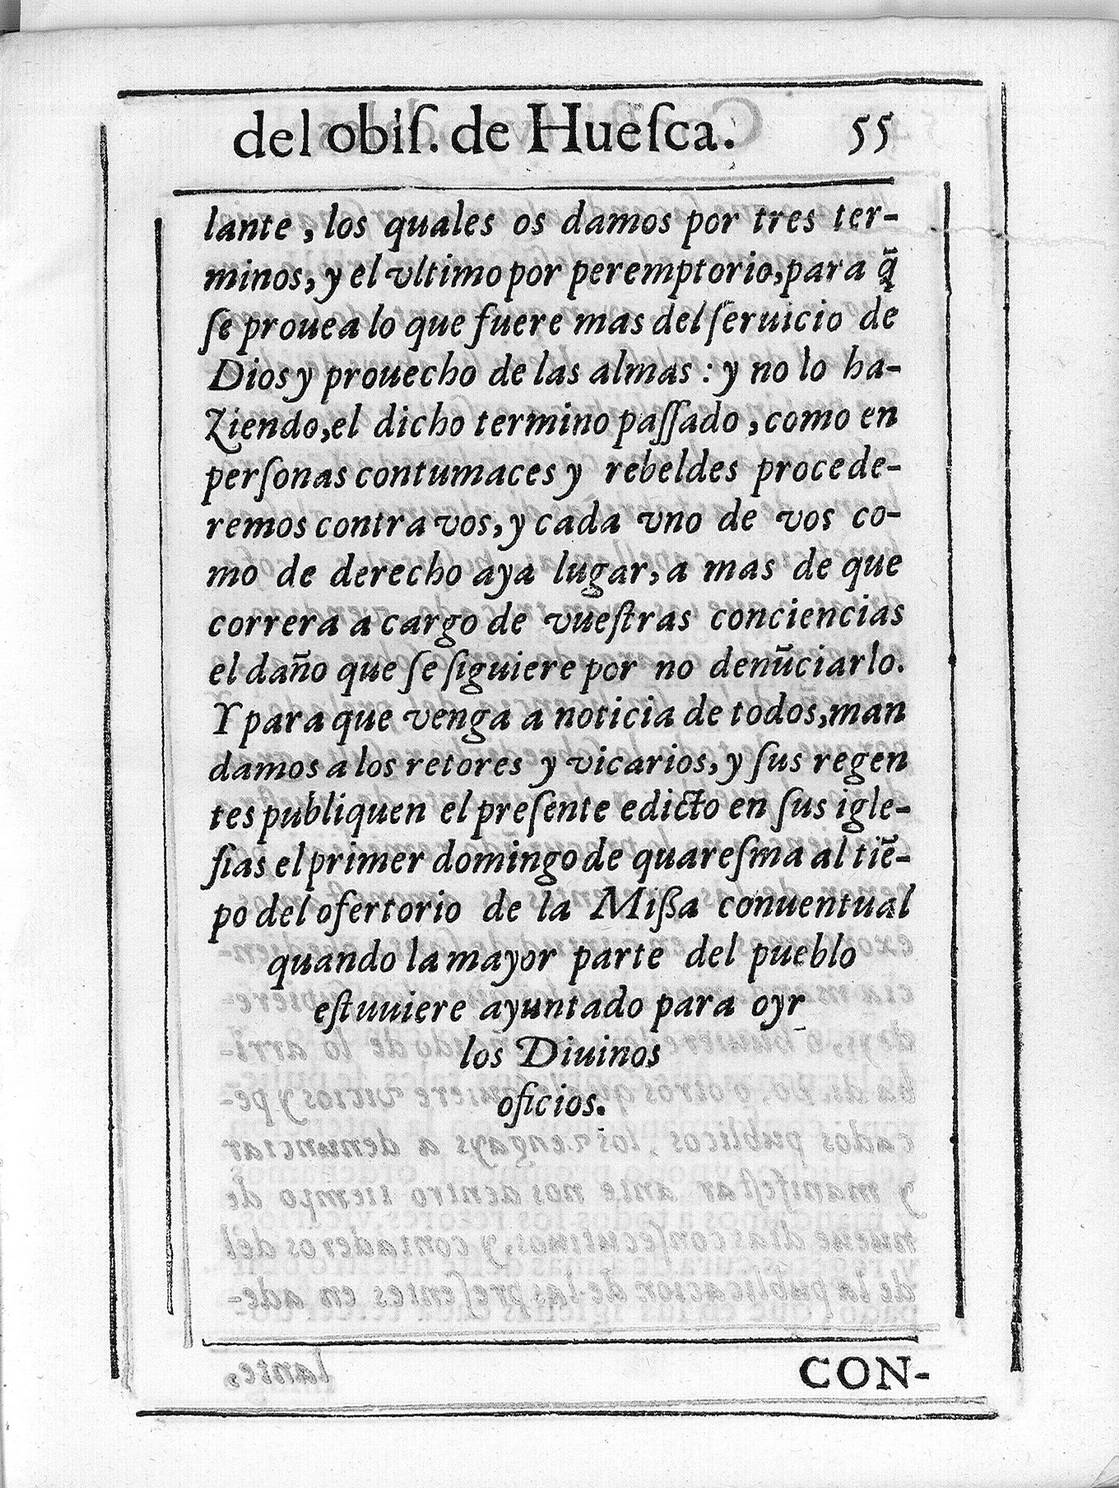 del obiſ. de Hueſca. 55
lante, los quales os damos por tres ter-
minos, y el vltimo por peremptorio, para q̃
ſe prouea lo que fuere mas del ſeruicio de
Dios y prouecho de las almas: y no lo ha-
ziendo, el dicho termino paſſado, como en
perſonas contumaces y rebeldes procede-
remos contra vos, y cada vno de vos co-
mo de derecho aya lugar, a mas de que
correra a cargo de vueſtras conciencias
el daño que ſe ſiguiere por no denũciarlo.
Y para que venga a noticia de todos, man
damos a los retores y vicarios, y ſus regen
tes publiquen el preſente edicto en ſus igle-
ſias el primer domingo de quareſma al tiẽ-
po del ofertorio de la Miſſa conuentual
quando la mayor parte del pueblo
eſtuuiere ayuntado para oyr
los Diuinos
oficios.
CON-